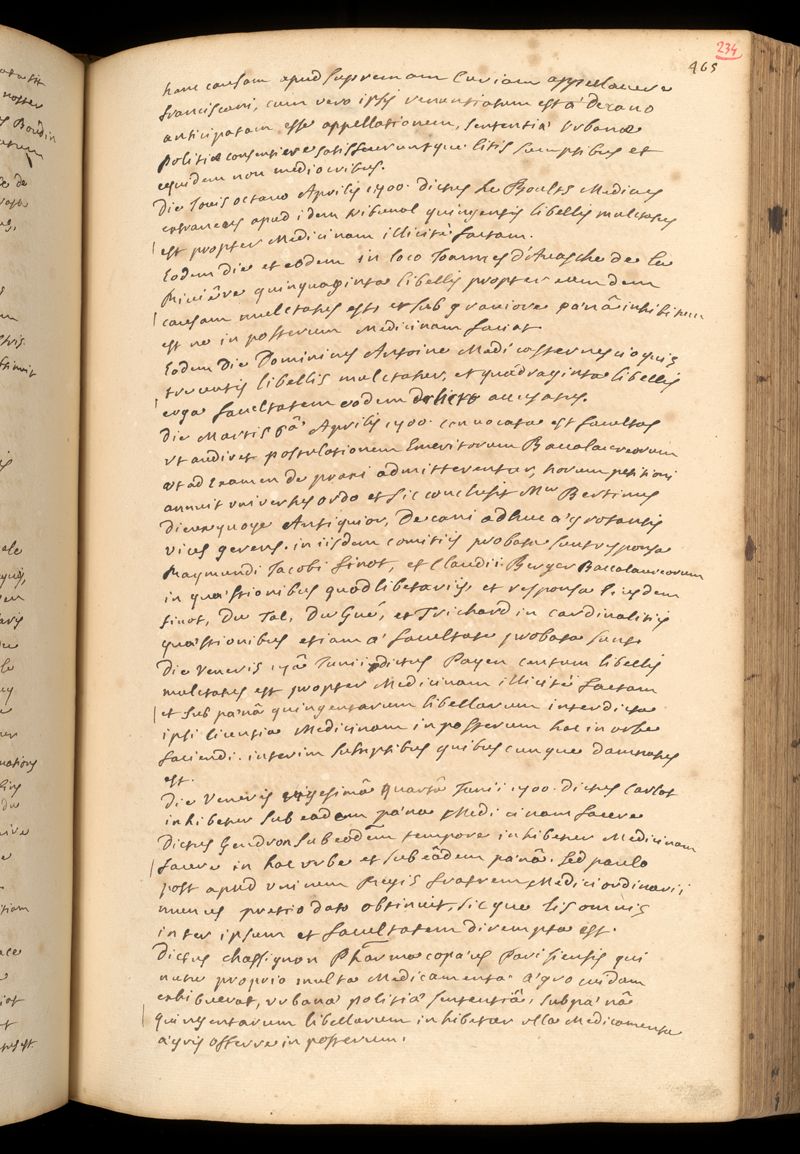 234
465
hanc causam apud supremam Curiam appellavere
franciscani, cum vero ipsis renuntiatum est a' Decano
anticipatam esse appellationem, sententiâ Urbanae
politiae consentiere satisfeceruntque litis sumptibus et
equidem non mediocribus.
Die Jovis octava Aprilis 1700. dictus Le Boults Medicus
extraneus apud idem tribunal quingentis libellis mulctatus
est propter Medicinam illicitè factam.
Eodem Die et eodem in loco Joannes de
quinquaginta libellis propter eamdem
causam mulctatus est, et sub graviore paenâ inhibitum
est ne in posterum Medicinam faciat
Eodem Die Dominicus Antoine Medicaster nescio quis
trecentis libellis mulctatus, et quadraginta libellis
erga facultatem eodem delicto accusatus.
Die Martis 6â Aprilis 1700. convocata est facultas
ut audiret postulationem Emeritorum Baccalaureorum
ut ad Examen de praxi admitterentur, horum petitioni
annuit universus ordo et sic conclusit Mer Bertinus
Dierexque Antiquior, Decani adhuc aegrotantis
vices gerens. in iisdem comitiis probata sunt responsa
Raymundi Jacobi finot, et Claudii Berger Baccalaureorum
in quaestionibus quodlibetariis, et responsa ejusdem
finot, Du Tal, Du Gué, et Trichard in cardinalitiis
quaestionibus etiam a' facultate probata sunt.
Die Veneris Junii dictus Payen centum libellis
mulctatus est propter Medicinam illicitè factam
et sub paenâ quingentarum libellarum interdicta
ipsi licentia Medicinam in posterum hac in urbe
faciendi. interim sumptibus quibuscumque damnatus
est.
Die Veneris vigesimâ quartâ Junii 1700. dictus Carlot
inhibetur sub eadem paena Medicinam facere
Dictus Gendron sub eodem tempore inhibetur Medicinam
facere in hac urbe et sub eâdem paenâ. sed paulo
post apud unicum Regis fratrem Medici ordinarii
munus pretio dato obtinuit, sicque lis omnis
inter ipsum et facultatem dirempta est.
Dictus Chassignon Pharmacopaeus Parisiensis qui
nutu proprio multa Medicamenta aegro cuidam
exhibuerat, urbanae politiae sententiâ, sub paenâ
quingentarum libellarum inhibetur ulla Medicamenta
aegris offerre in posterum.